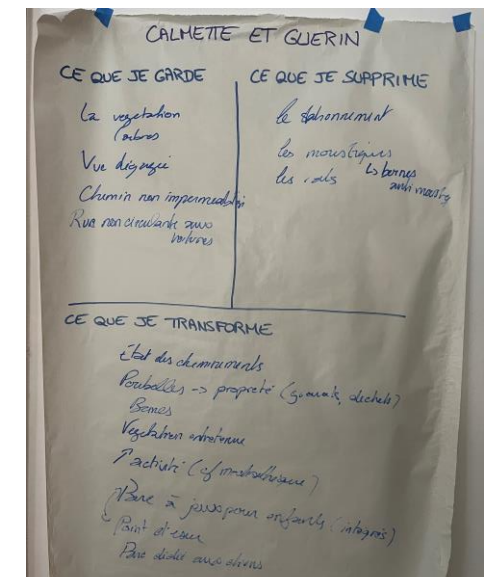 CALMETTE ET GUERIN
CE QUE JE GARDE
La vegetation
(arbres
Vue dégagée
Chemin non imperméabilisé
Rue non circulante aux
voitures
CE QUE JE SUPPRIME
le stationnement
les moustiques
↳ bornes
anti moustiq
les rats
CE QUE JE TRANSFORME
État des cheminements
Poubelles -> propreté (gourmands, déchets)
Bancs
Vegetation entretenue
↑ activité (cf
Parc à jeux pour enfants (intégrés)
Point d'eau
Parc dédié aux chiens